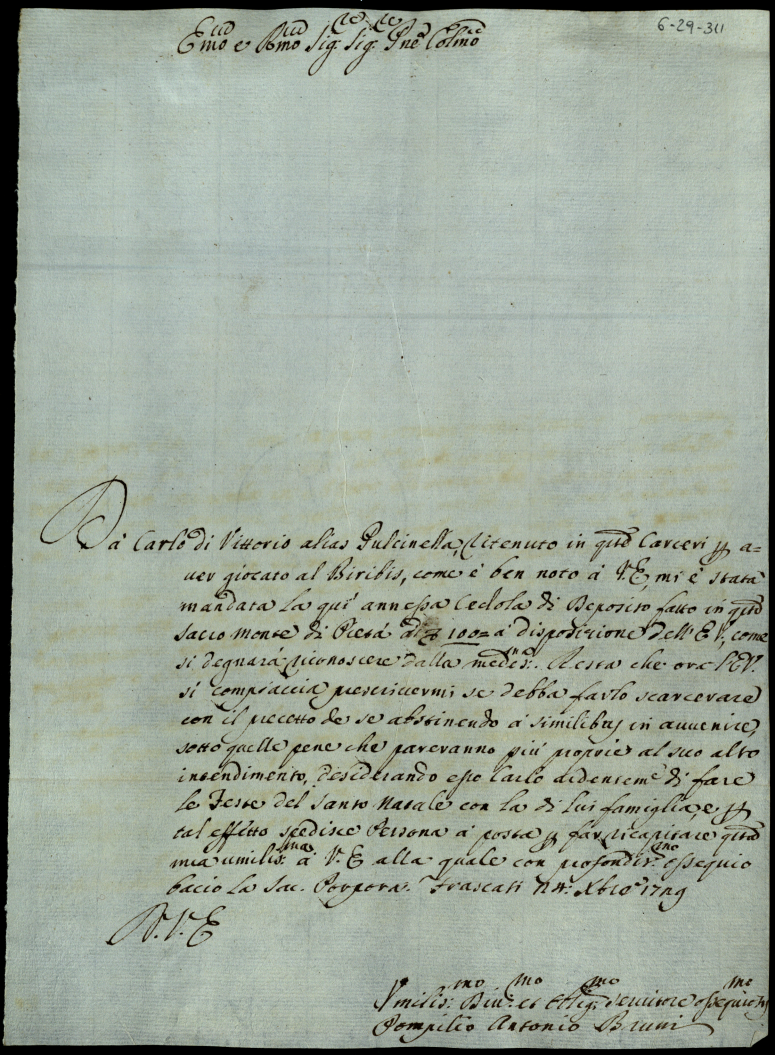 6-29-311
Emo e Rmo Sig.re Sig.re Pne Colmo
Da Carlo di Vittorio alias Pulcinella, ritenuto in qste Carceri p a=
ver giocato al Biribis, come è ben noto à V.E, mi è stata
mandata la qui annessa Cedola di Deposito fatto in qsto
Sacro Monte di Pietà di 100= à disposizione dell'E.V, come
si degnarà riconoscere dalla medes.ma. Resta che ora l'E.V.
si compiaccia prescrivermi se debba farlo scarcerare
con il precetto de se abstinendo à similibus in avvenire,
sotto quelle pene che pareranno più proprie al suo alto
intendimento, desiderando esso Carlo ardentem.e di fare
le Feste del Santo Natale con la di lui famiglia, e p
tal effetto spedisce Persona à posta p far ricapitare qsta
mia umilis.ma à V.E alla quale con profondis.mo ossequio
bacio la Sac. Porpora. Frascati Xbre 1749
D.V.E
Vmilis.mo Div.mo et Oblig.mo servitore ossequio.mo
Pompilio Antonio Bruni